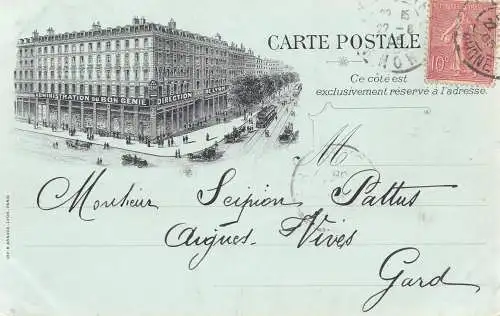 CARTE POSTALE
Ce côté est
exclusivement réservé à l'adresse.
ADMINISTRATION DU BON GÉNIE DIRECTION DE LYON
10c
M
Monsieur Scipion Pattus
Aigues-Vives
Gard